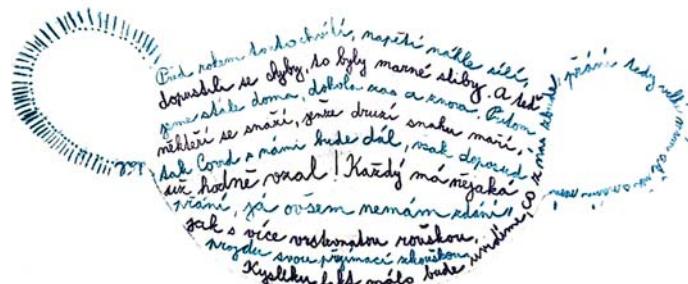 Před rokem touto chvílí, napětí náhle sílí,
dopustili se chyby, to byly marné sliby. A teď
jsme stále doma, dokola zas a znova. Přitom
někteří se snaží, jenže druzí snahu maří,
tak Covid s námi bude dál, však doposud
už hodně vzal! Každý má nějaká
přání, já ovšem nemám zdání,
jak s více vrstevnatou rouškou,
projdu svou přijímací zkouškou.
Kyslíku fakt málo bude uvidíme, co z nás zbude, přání tedy